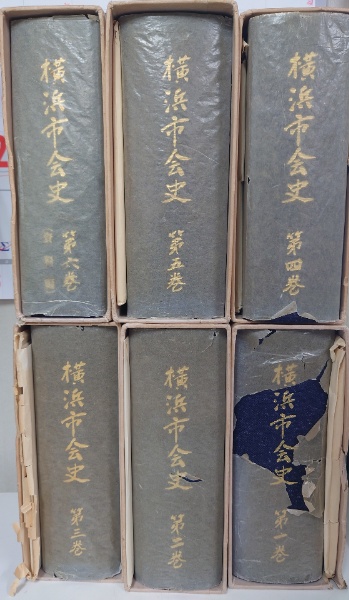 横浜市会史 第六巻 資料編
横浜市会史 第五巻
横浜市会史 第四巻
横浜市会史 第三巻
横浜市会史 第二巻
横浜市会史 第一巻